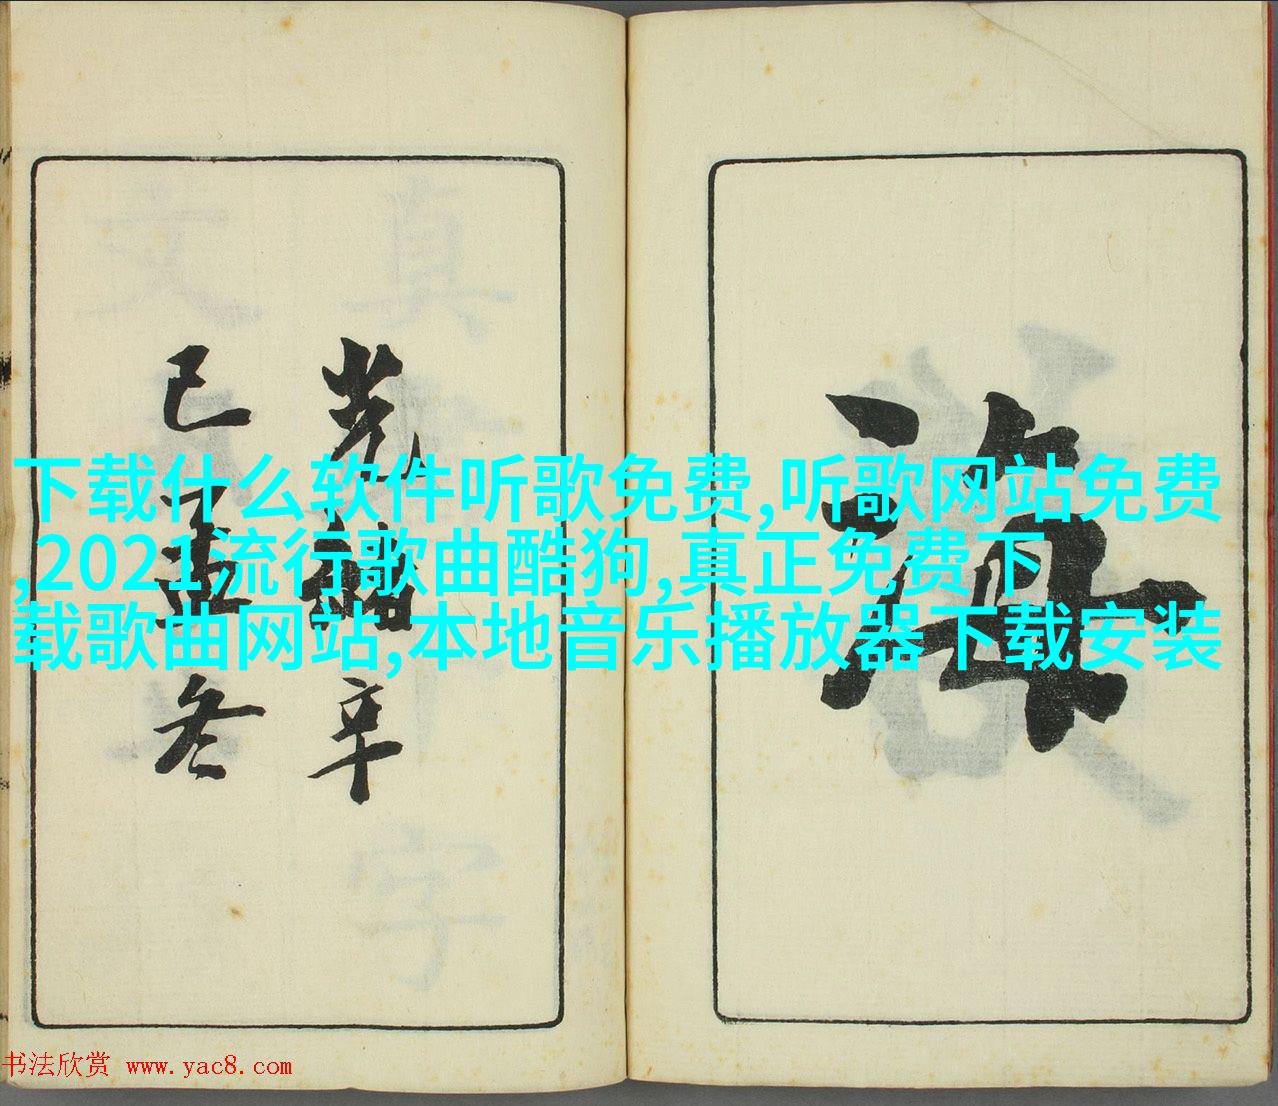 海
光緒辛
巳孟冬
下载什么软件听歌免费,听歌网站免费
,2021流行歌曲酷狗,真正免费下
载歌曲网站,本地音乐播放器下载安装
书法欣赏 www.yac8.com